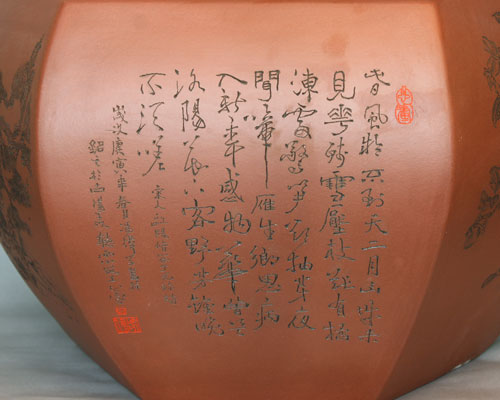 春風疑不到天二月山城未
見花殘雪壓枝猶有桔
凍雷驚笋欲抽芽夜
聞歸雁生鄉思病
入新年感物華曾是
洛陽花下客野芳雖晚
不須嗟
宋人
歲次庚寅年春月